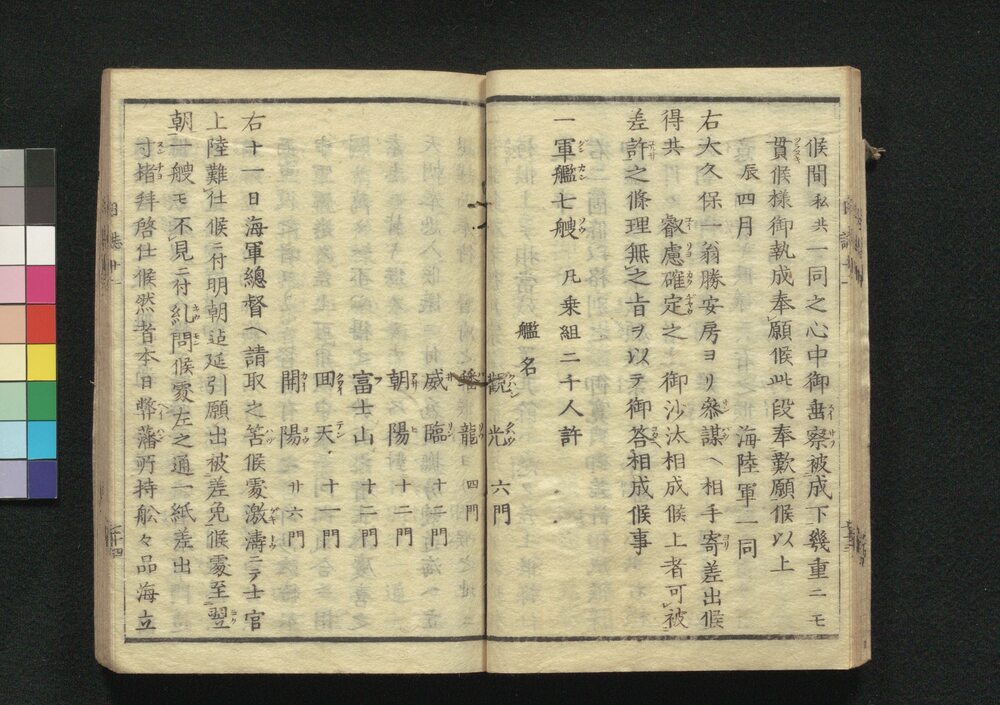 候間私共一同之心中御垂察被成下幾重ニモ
貫候様御執成奉願候此段奉歎願候以上
辰四月　海陸軍一同
右大久保一翁勝安房ヨリ參謀ヘ相手寄差出候
得共　叡慮確定之　御沙汰相成候上者可被
差許之條理無之旨ヲ以テ御答相成候事
一軍艦七艘　凡乗組二千人許
艦名
觀光　六門
蟠龍　四門
咸臨　十二門
朝陽　十二門
富士山　十二門
回天　十一門
開陽　廿六門
右十一日海軍總督ヘ請取之筈候處激濤ニテ士官
上陸難仕候ニ付明朝迠延引願出被差免候處至翌
朝一艘モ不見ニ付糺問候處左之通一紙差出
寸堵拜啓仕候然者本日弊藩所持舩々品海立